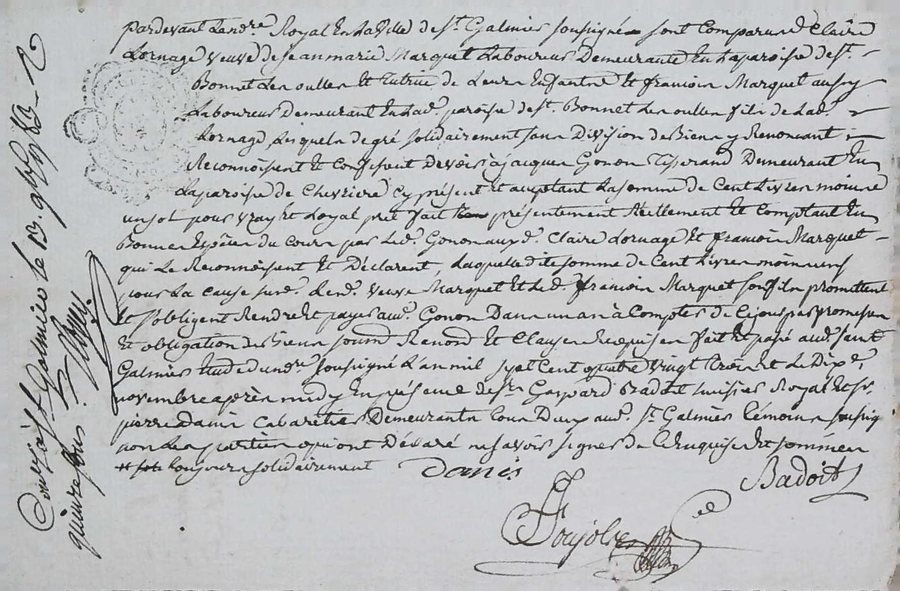 pardevant Le no.re Royal En La Ville de St. Galmier soussigné sont Comparus Claire
Dornage veuve de Jeanmarie Marquet Laboureur Demeurante En La paroisse de St.
Bonnet Les oulles Et tutrice de Leurs Enfants Et francois Marquet aussy
Laboureur Demeurant En Lad. paroisse de St. Bonnet Les oulles fils de Lad.
Dornage Lesquels de gré solidairement sans Division de Biens y Renoncant
Reconnoissent Et Confessent Devoir a jacques Gonon Tisserand Demeurant En
La paroisse de Chevriere Cy présent et aceptant La somme de Cent Livres moins
un sol pour vray Et Loyal pret fait présentement Réellement Et Comptant En
Bonnes Espèces du Cours par Led. Gonon auxd. Claire dornage Et francois Marquet
qui Le Reconnoissent Et Déclarent, Laquelle dite somme de Cent Livres moins un s
pour La cause susd. Lesd. veuve Marquet Et Led. francois Marquet son fils promettent
Et s'obligent Rendre Et payer aud. Gonon Dans un an à Compter de Ce jour par promesse
Et obligation de Biens soumd. Renond. Et Clauses Requises fait Et passé aud. Saint
Galmier Etude dud. no.re soussigné L'an mil sept Cent quatre vingt trois Et Le Dix
novembre après midy En présence de Sr. Gaspard Badoit huissier Royal Et Sr.
pierre danis Cabaretier Demeurants tous Deux aud. St. Galmier témoins soussig
non Les parties qui ont Déclaré ne savoir signer de Ce Requises Et sommées
toujours solidairement
Danis
Badoit
Poujol
Con.lé à St. Galmier le 13. 9bre 1783
quinze sous.